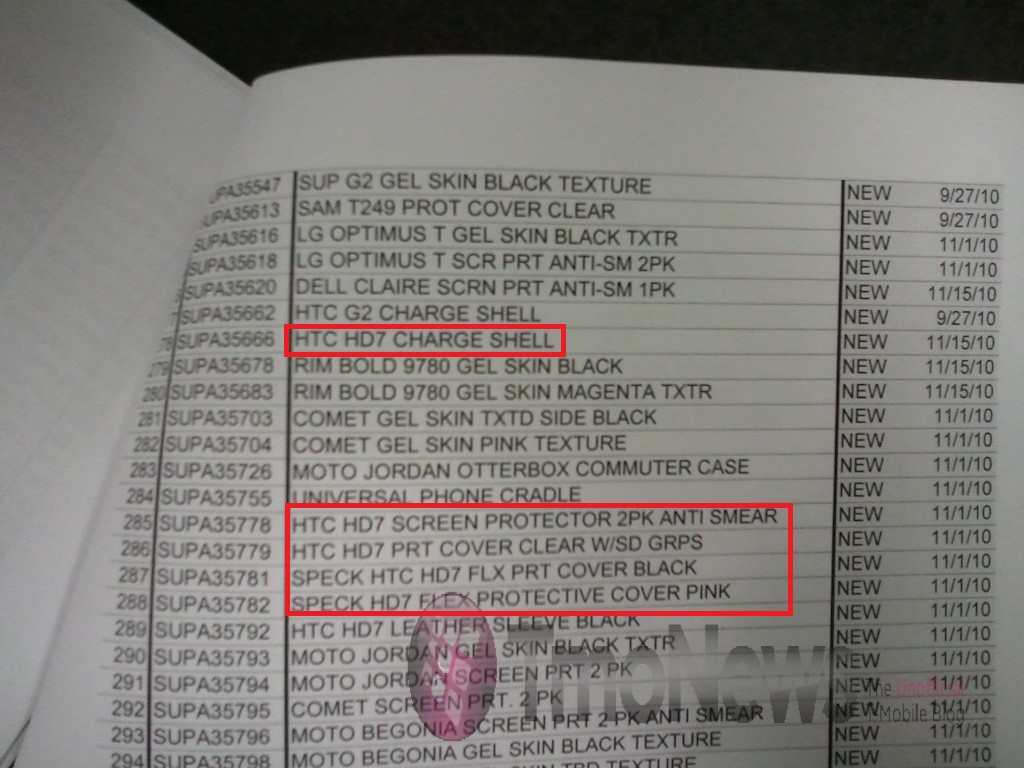 UPA35547 SUP G2 GEL SKIN BLACK TEXTURE NEW 9/27/10
SUPA35613 SAM T249 PROT COVER CLEAR NEW 9/27/10
SUPA35616 LG OPTIMUS T GEL SKIN BLACK TXTR NEW 11/1/10
SUPA35618 LG OPTIMUS T SCR PRT ANTI-SM 2PK NEW 11/1/10
SUPA35620 DELL CLAIRE SCRN PRT ANTI-SM 1PK NEW 11/15/10
SUPA35662 HTC G2 CHARGE SHELL NEW 9/27/10
78 SUPA35666 HTC HD7 CHARGE SHELL NEW 11/15/10
279 SUPA35678 RIM BOLD 9780 GEL SKIN BLACK NEW 11/15/10
280 SUPA35683 RIM BOLD 9780 GEL SKIN MAGENTA TXTR NEW 11/15/10
281 SUPA35703 COMET GEL SKIN TXTD SIDE BLACK NEW 11/1/10
282 SUPA35704 COMET GEL SKIN PINK TEXTURE NEW 11/1/10
283 SUPA35726 MOTO JORDAN OTTERBOX COMMUTER CASE NEW 11/1/10
284 SUPA35755 UNIVERSAL PHONE CRADLE NEW 11/1/10
285 SUPA35778 HTC HD7 SCREEN PROTECTOR 2PK ANTI SMEAR NEW 11/1/10
286 SUPA35779 HTC HD7 PRT COVER CLEAR W/SD GRPS NEW 11/1/10
287 SUPA35781 SPECK HTC HD7 FLX PRT COVER BLACK NEW 11/1/10
288 SUPA35782 SPECK HD7 FLEX PROTECTIVE COVER PINK NEW 11/1/10
289 SUPA35792 HTC HD7 LEATHER SLEEVE BLACK NEW 11/1/10
290 SUPA35793 MOTO JORDAN GEL SKIN BLACK TXTR NEW 11/1/10
291 SUPA35794 MOTO JORDAN SCREEN PRT 2 PK NEW 11/1/10
292 SUPA35795 COMET SCREEN PRT. 2 PK NEW 11/1/10
293 SUPA35796 MOTO BEGONIA SCREEN PRT 2-PK ANTI SMEAR NEW 11/1/10
294 SUPA35798 MOTO BEGONIA GEL SKIN BLACK TEXTURE NEW 11/1/10
TmoNews
The Unofficial
Mobile Blog